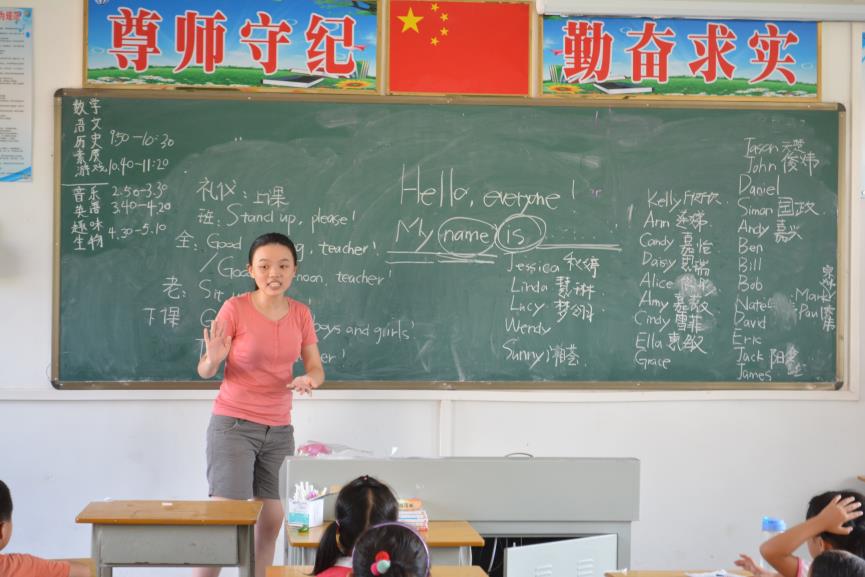 尊师守纪
勤奋求实
数学
语文
历史 9:50-10:30
素质
游戏 10.40-11:20
音乐 2.50-3.30
英语 3.40-4.20
趣味
生物 4.30-5.10
礼仪: 上课
班: Stand up, please!
全: Good teacher!
/Good noon, teacher!
老: Sit
下课
boys and guirls!
Hello, everyone!
My name is
Jessica 秋婷
Linda 慧琳
Lucy 梦
Wendy
Sunny 湘芸
Kelly 欣欣
Ann
Candy 嘉
Daisy 思瑞
Alice
Amy 嘉
Cindy 雪菲
Ella 惠敏
Grace
Jason
John 俊炜
Daniel
Simon 国政
Andy 嘉兴
Ben
Bill
Bob
Nate
Mark
David
Paul
Eric
Jack 阳
James